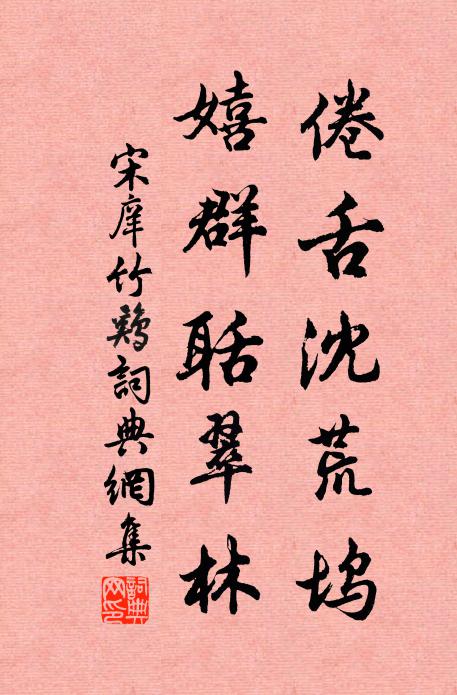 倦舌沈荒坞
嬉群聒翠林
宋庠竹鷄詞典網集
詞典网印